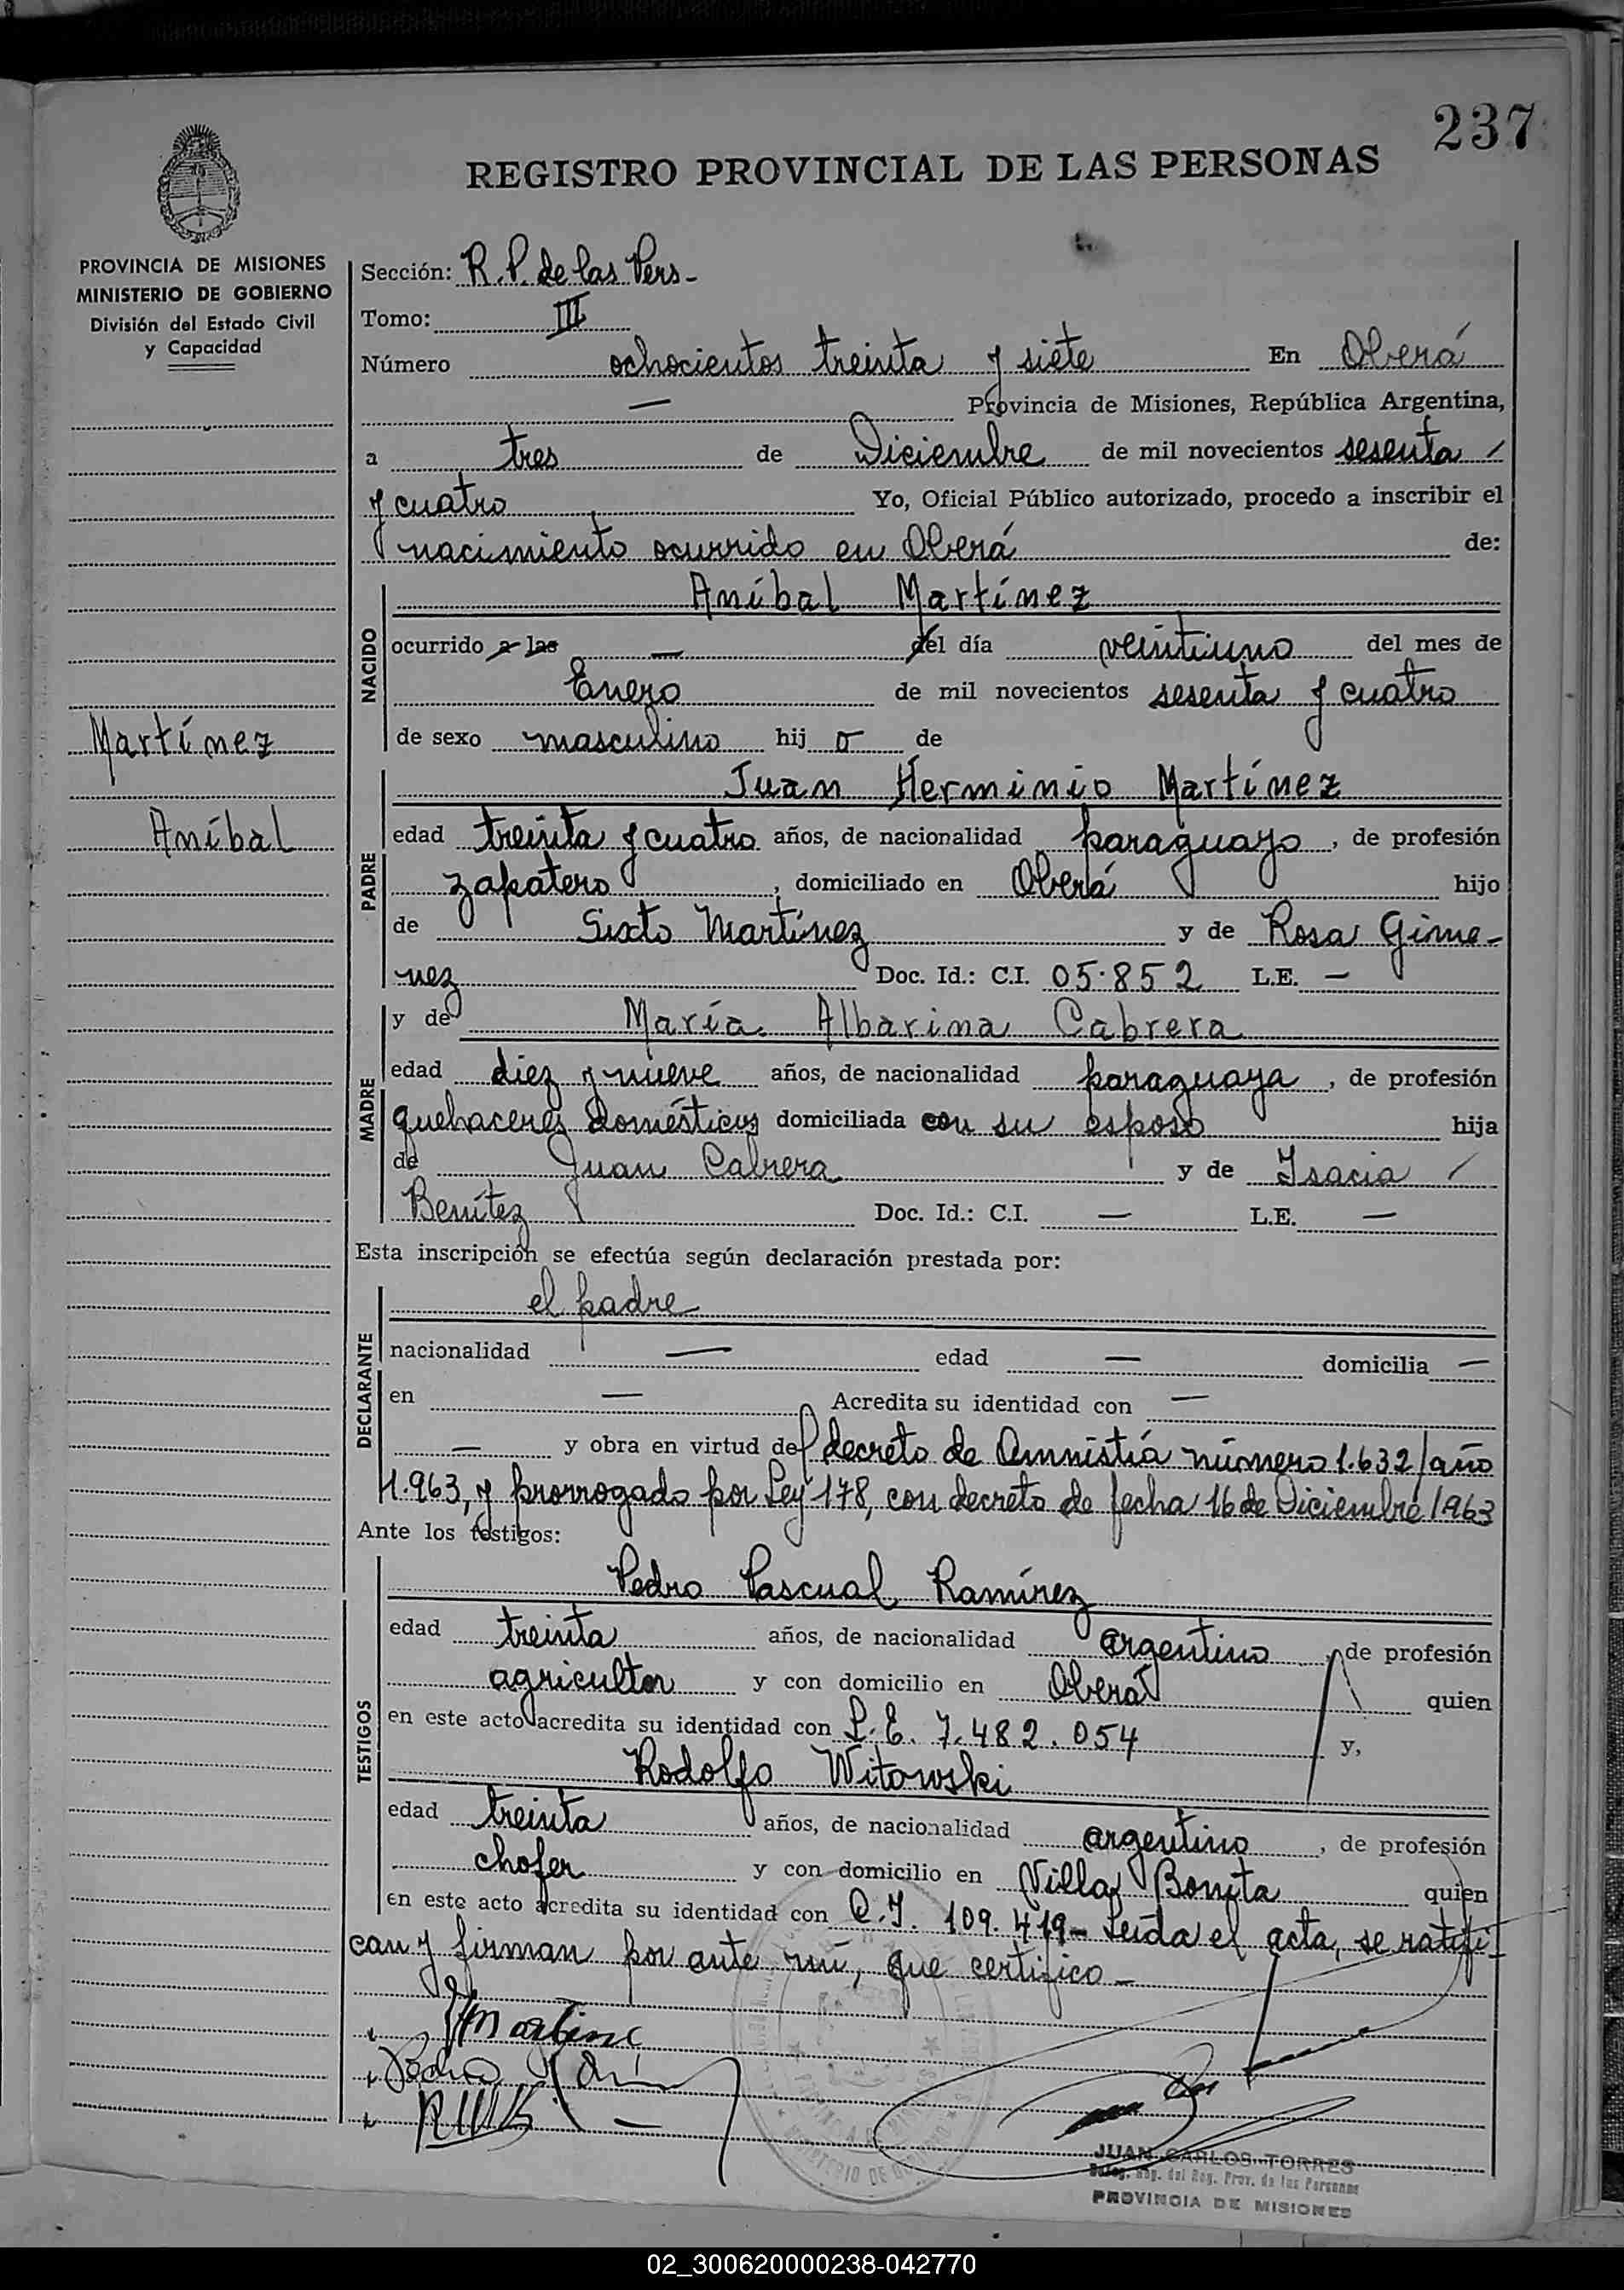 237
REGISTRO PROVINCIAL DE LAS PERSONAS
PROVINCIA DE MISIONES
MINISTERIO DE GOBIERNO
División del Estado Civil
y Capacidad
Martínez
Aníbal
Sección: R.P. de las Pers-
Tomo: III
Número ochocientos treinta y siete En Oberá
— Provincia de Misiones, República Argentina,
a tres de Diciembre de mil novecientos sesenta /
y cuatro Yo, Oficial Público autorizado, procedo a inscribir el
nacimiento ocurrido en Oberá de:
NACIDO
Aníbal Martínez
ocurrido a las — del día veintiuno del mes de
Enero de mil novecientos sesenta y cuatro
de sexo masculino hij o de
PADRE
Juan Herminio Martínez
edad treinta y cuatro años, de nacionalidad paraguayo, de profesión
zapatero, domiciliado en Oberá hijo
de Sixto Martínez y de Rosa Gime-
nez Doc. Id.: C.I. 05.852 L.E. —
MADRE
y de María Albarina Cabrera
edad diez y nueve años, de nacionalidad paraguaya, de profesión
quehaceres domésticos domiciliada con su esposo hija
de Juan Cabrera y de Isacia /
Benítez Doc. Id.: C.I. — L.E. —
Esta inscripción se efectúa según declaración prestada por:
DECLARANTE
el padre
nacionalidad — edad — domicilia —
en — Acredita su identidad con —
— y obra en virtud del decreto de Amnistía número 1.632/año
1.963, y prorrogado por Ley 178, con decreto de fecha 16 de Diciembre 1963
Ante los testigos:
TESTIGOS
Pedro Pascual Ramírez
edad treinta años, de nacionalidad argentino, de profesión
agricultor y con domicilio en Oberá quien
en este acto acredita su identidad con L.E. 7.482.054 y,
Rodolfo Witowski
edad treinta años, de nacionalidad argentino, de profesión
chofer y con domicilio en Villa Bonita quien
en este acto acredita su identidad con C.I. 109.419- Leída el acta, se ratifi-
can y firman por ante mí, que certifico-
Pedro
JUAN CARLOS TORRES
Deleg. Reg. del Reg. Prov. de las Personas
PROVINCIA DE MISIONES
02_300620000238-042770